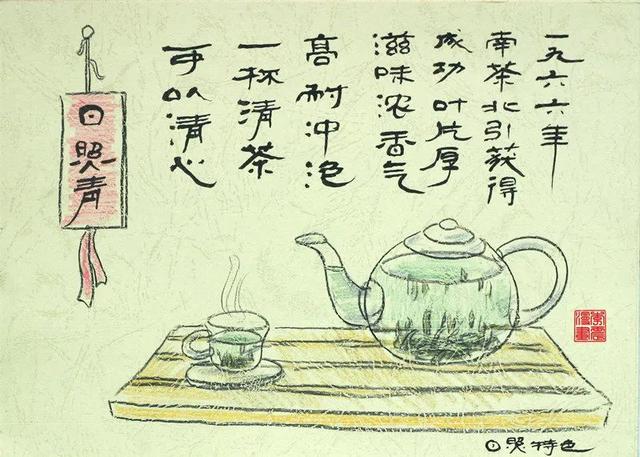 一九六六年
南茶北引获得
成功叶片厚
滋味浓香气
高耐冲泡
一杯清茶
可以清心
日照青
日照特色